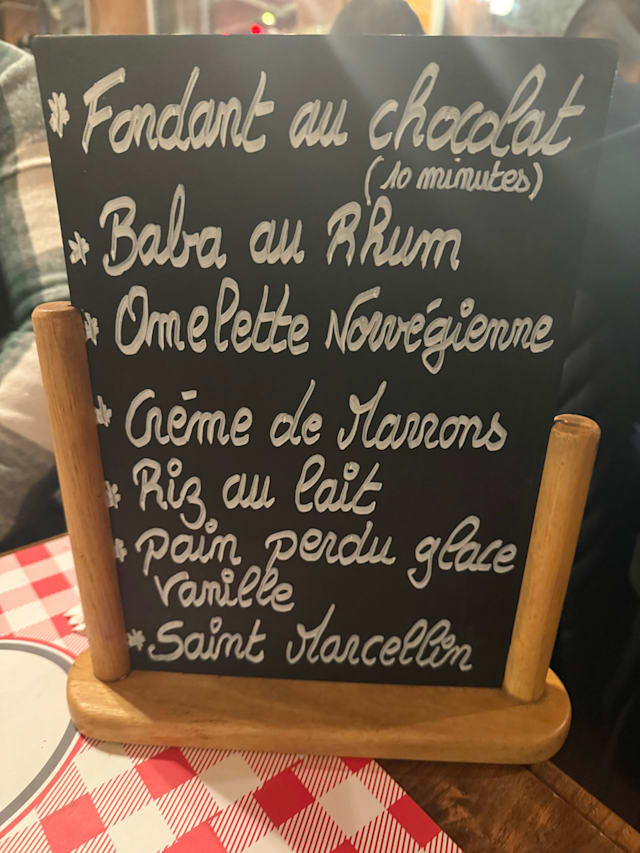 * Fondant au chocolat
(10 minutes)
* Baba au Rhum
* Omelette Norvégienne
* Crème de Marrons
* Riz au lait
* pain perdu glace
vanille
* Saint Marcellin